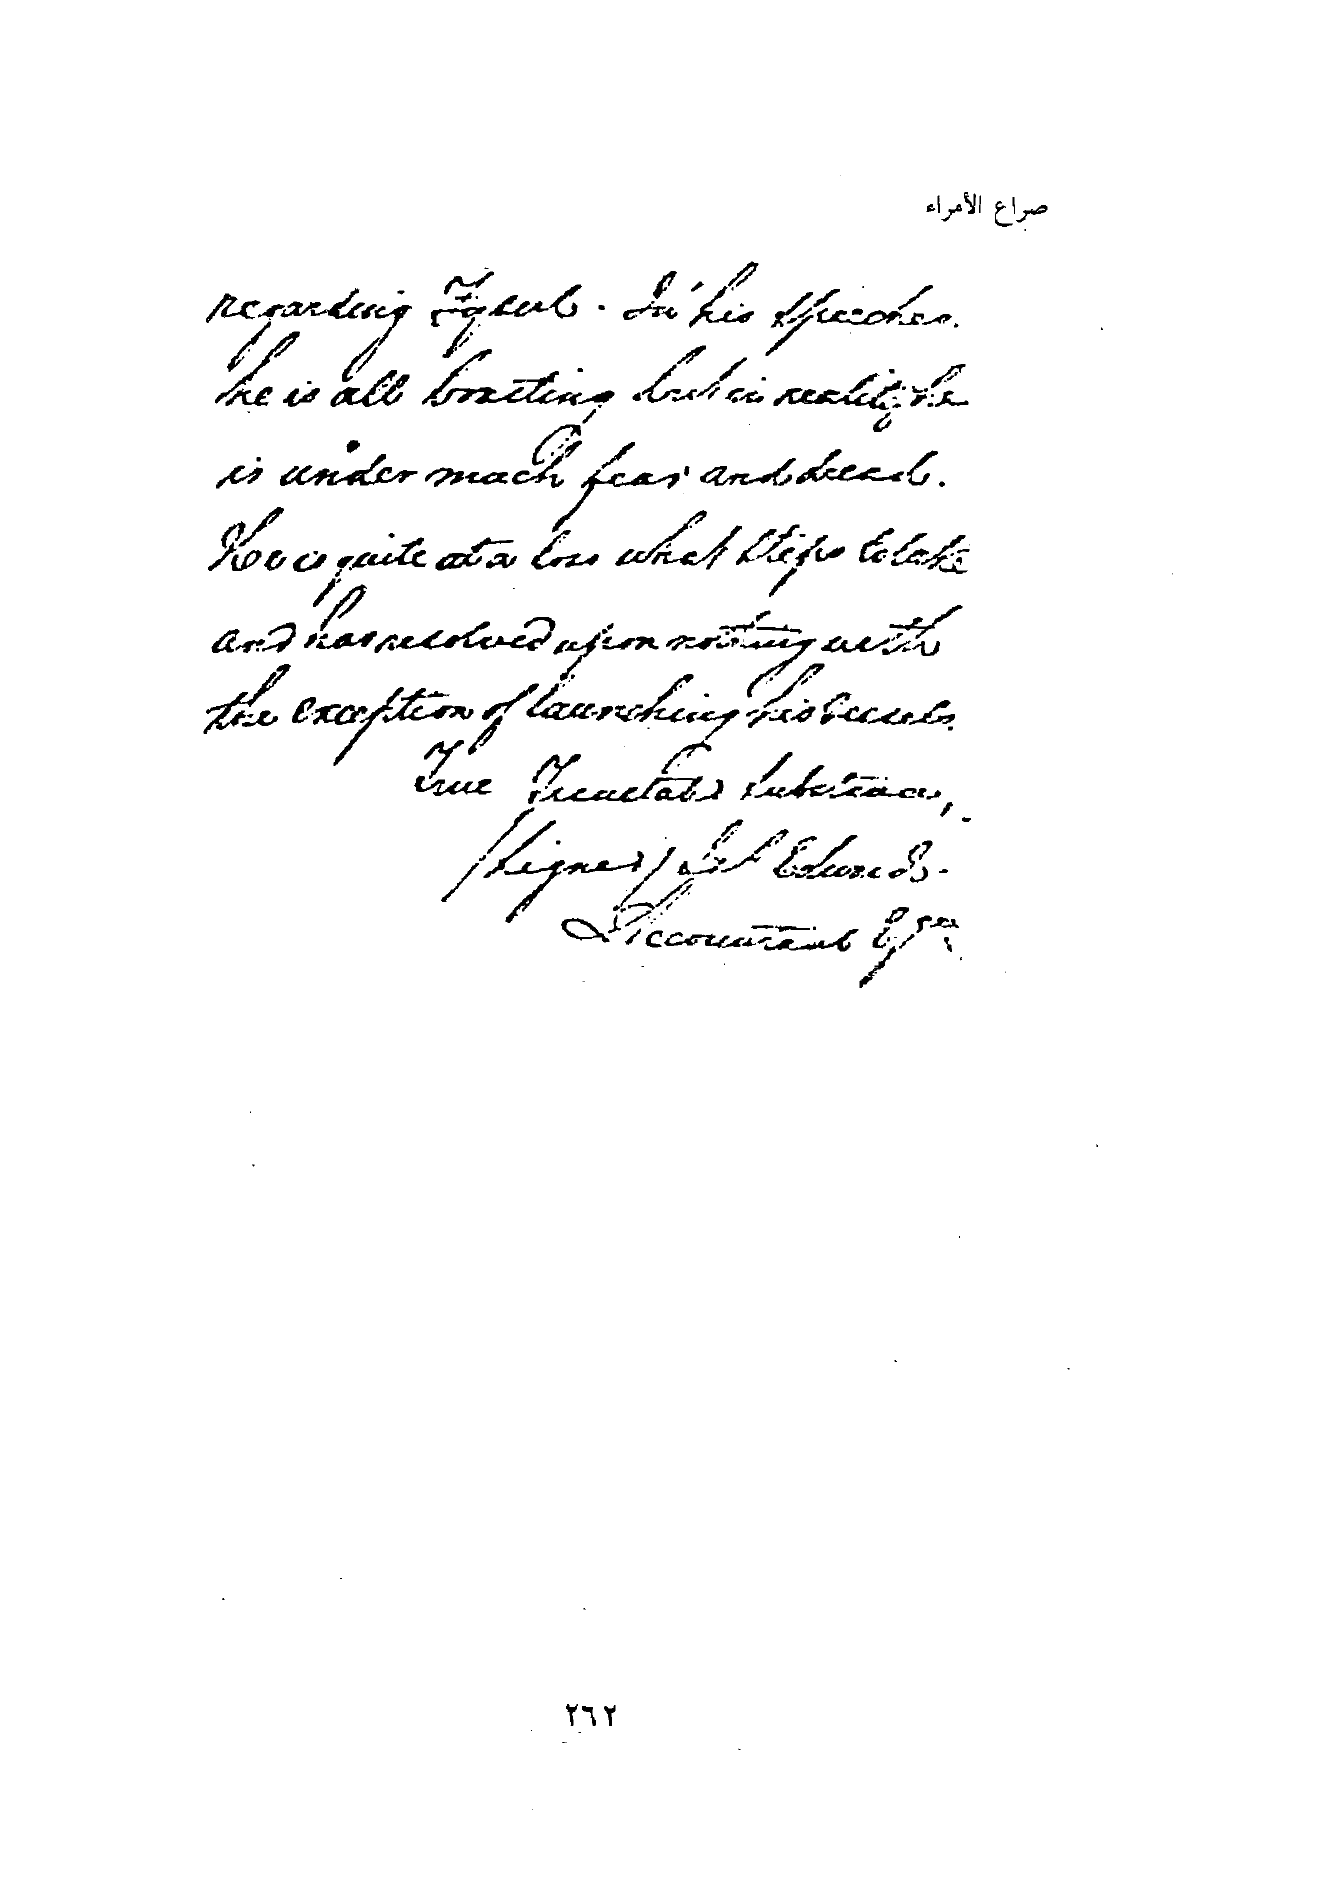 صراع الأمراء
regarding. In his speeches.
he is all boasting but in reality he
is under much fear and dread.
He is quite at a loss what steps to take
and has resolved upon nothing with
the exception of launching his vessels.
True Translated substance,
(Signed)
Accountant
٢٦٢